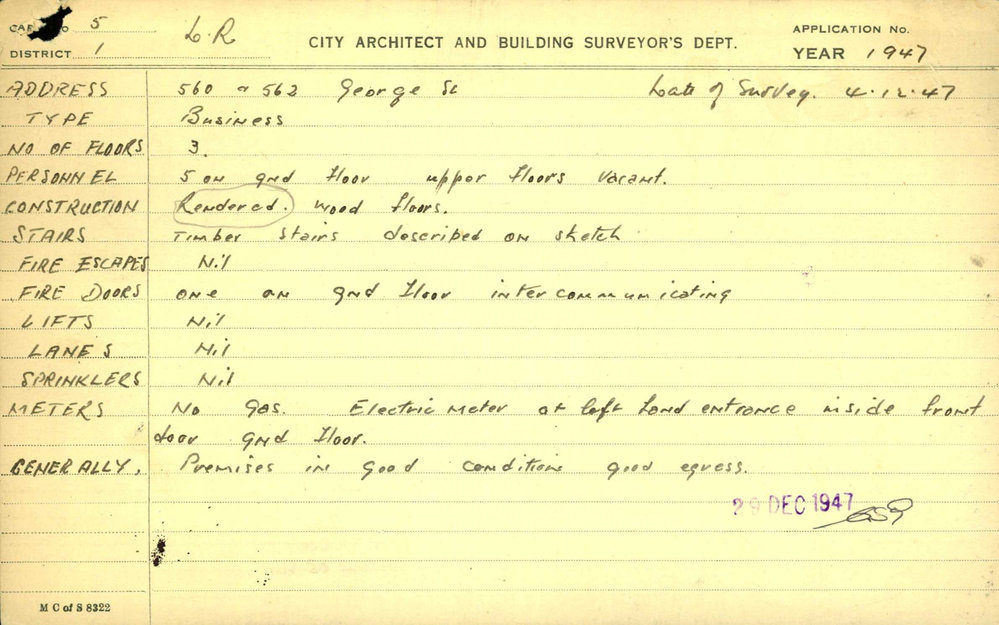 5 L.R
DISTRICT 1 CITY ARCHITECT AND BUILDING SURVEYOR'S DEPT. APPLICATION No.
YEAR 1947
ADDRESS 560 a 562 George St Date of Survey. 4.12.47
TYPE Business
NO OF FLOORS 3.
PERSONNEL 5 on gnd floor upper floors vacant.
CONSTRUCTION Rendered. wood floors.
STAIRS Timber stairs described on sketch
FIRE ESCAPES Nil
FIRE DOORS one on gnd floor intercommunicating
LIFTS Nil
LANES Nil
SPRINKLERS Nil
METERS No gas. Electric meter at left hand entrance inside front
door gnd floor.
GENERALLY, Premises in good condition good egress.
29 DEC 1947
M C of S 8322